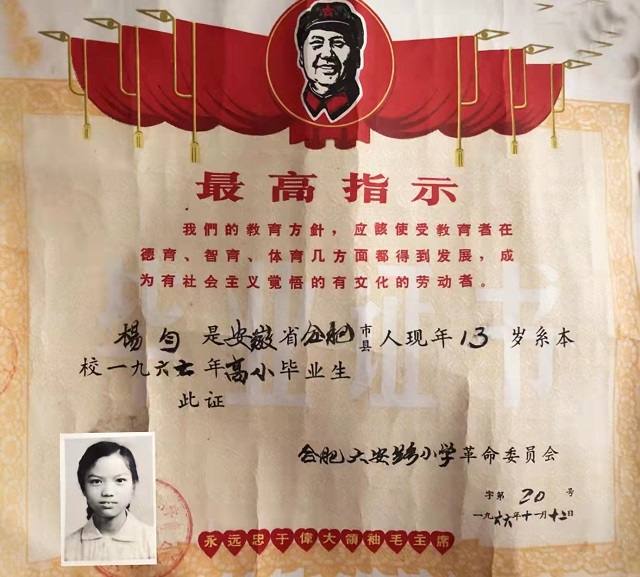 最高指示
我們的教育方針，应該使受教育者在
德育、智育、体育几方面都得到发展，成
为有社会主义覚悟的有文化的劳动者。
毕业证书
楊勻是安徽省合肥市县人现年13岁系本
校一九六六年高小毕业生
此证
合肥六安路小学革命委员会
字第20号
一九六六年十一月十二日
永远忠于偉大領袖毛主席